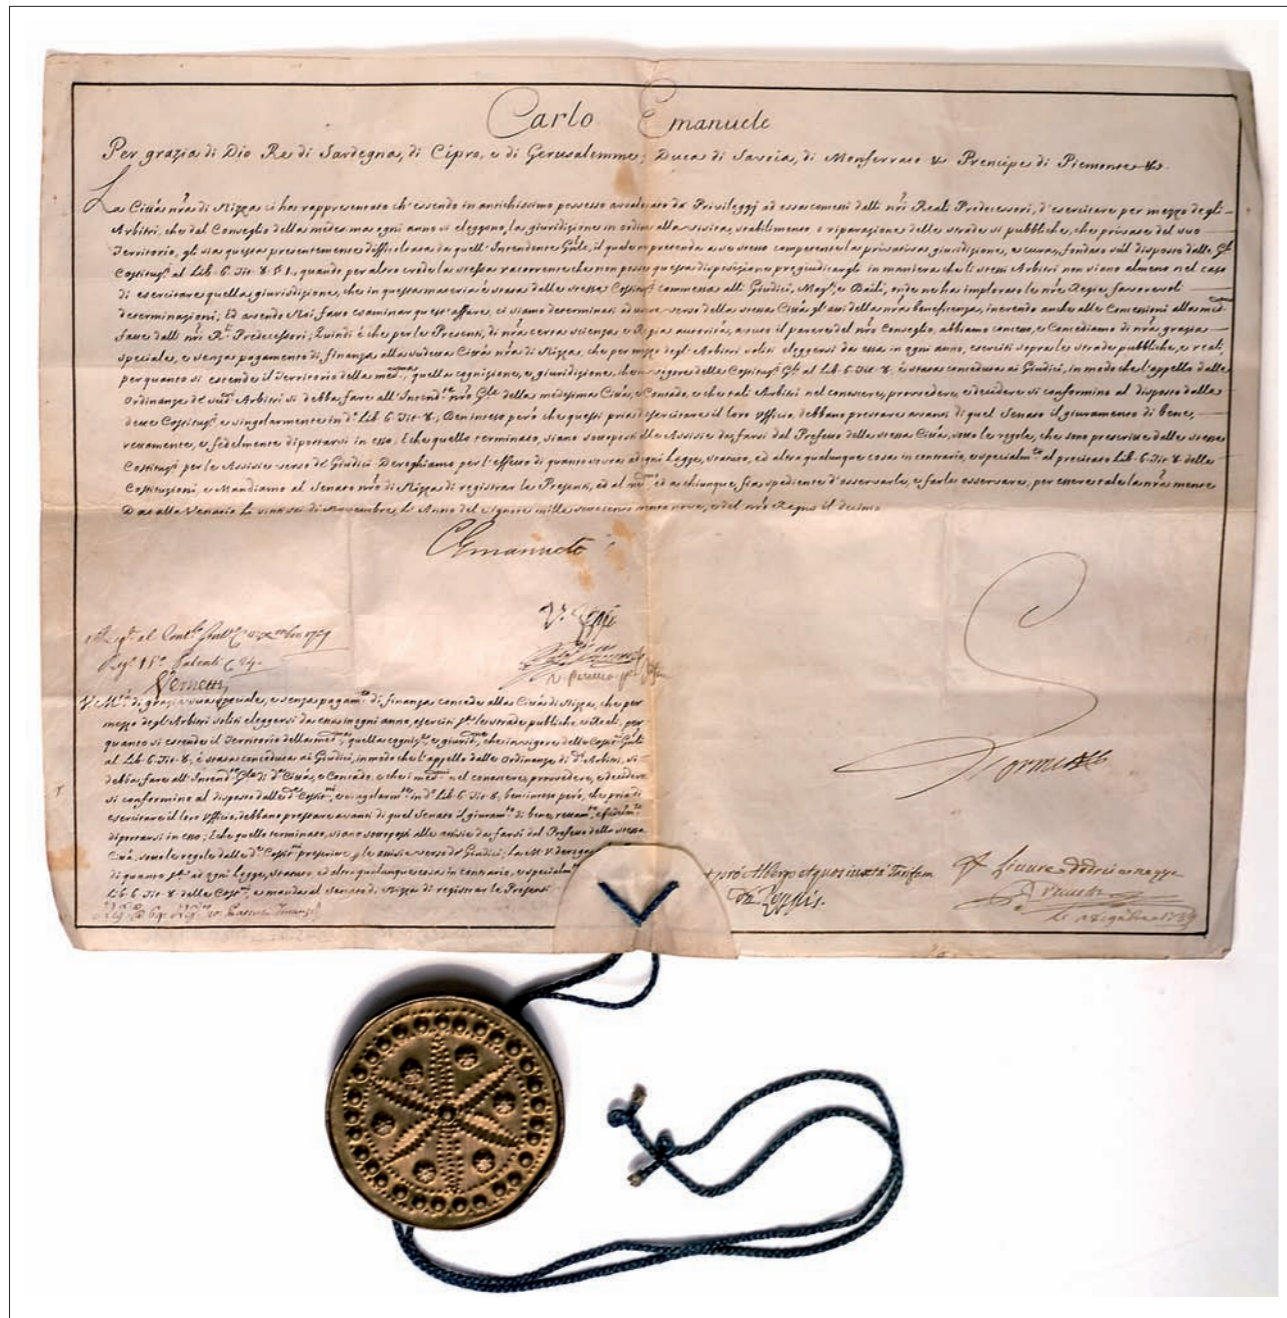 Carlo Emanuele
Per grazia di Dio Re di Sardegna, di Cipro, e di Gerusalemme; Duca di Savoia, di Monferrato &. Prencipe di Piemonte &.
La Città nr̃a di Nizza ci ha rappresentato ch'essendo in antichissimo possesso avvalorato da Privileggj ad essa concessi dalli nr̃i Reali Predecessori, d'esercitare per mezzo degli
Arbitri, che dal Conseglio della medesma ogni anno si eleggono, la giurisdizione in ordine alla visita, stabilimento, e riparazione delle strade sì pubbliche, che private del suo
Territorio, gli sia questa presentemente difficoltata da quell'Intendente Gñle, il quale pretenda a se stesso competere la privativa giurisdizione, e cura, fondato sul disposto dalle Gli
Costituzi al Lib. 6. Tit. 8. § 1., quando per altro crede la stessa raccorrente che non possa questa disposizione pregiudicargli in maniera che li stessi Arbitri non siano almeno nel caso
di esercitare quella giurisdizione, che in questa materia è stata dalle stesse Costituzi commessa alli Giudici, Magti, e Baili, onde ne ha implorato le nr̃e Regie, favorevoli
determinazioni; Ed avendo Noi fatto esaminar quest'affare, ci siamo determinati ad usare verso della stessa Città gl'atti della nr̃a beneficenza, inerendo anche alle Concessioni alla med.ma
fatte dalli nr̃i R.li Predecessori; Quindi è che per le Presenti, di nr̃a certa scienza, e Regia autorità, avuto il parere del nr̃o Conseglio, abbiamo concesso, e Concediamo di nr̃a grazia
speciale, e senza pagamento di finanza alla sudetta Città nr̃a di Nizza, che per mezzo degl'Arbitri soliti eleggersi da essa in ogni anno, eserciti sopra le strade pubbliche, e reali,
per quanto si estende il Territorio della med.ma, quella cognizione, e giurisdizione, che in vigore delle Costituzi Gli al Lib. 6. Tit. 8., è stata conceduta ai Giudici, in modo che l'appello dalle
Ordinanze de' sud.i Arbitri si debba fare all'Intend.te nr̃o Gñle della medesima Città, e Contado, e che tali Arbitri nel conoscere, provvedere, e decidere si conformino al disposto dalle
dette Costituzi, e singolarmente in d.o Lib. 6. Tit. 8.; Beninteso però che questi pria d'esercitare il loro Ufficio, debbano prestare avanti di quel Senato il giuramento di bene,
rettamente, e fedelmente diportarsi in esso; E che quello terminato, siano sottoposti alle Assisie da farsi dal Prefetto della stessa Città, sotto le regole, che sono prescritte dalle stesse
Costituzi per le Assisie verso de' Giudici. Deroghiamo per l'effetto di quanto sovra ad ogni Legge, statuto, ed altra qualunque cosa in contrario, e specialm.te al precitato Lib. 6. Tit. 8. delle
Costituzioni, e Mandiamo al Senato nr̃o di Nizza di registrar le Presenti, ed al med.mo, ed a chiunque fia spediente d'osservarle, e farle osservare, per essere tale la nr̃a mente
Dat. alla Venaria li vintisei di Novembre, l'Anno del Signore mille settecento trenta nove, e del nr̃o Regno il decimo
CEmanuele
V.
Vernetti
V. M. di grazia sua speciale, e senza pagam.to di finanza concede alla Città di Nizza, che per
mezzo degl'Arbitri soliti eleggersi da essa in ogni anno, eserciti s.a le strade publiche, e Reali, per
quanto si estende il Territorio della med.ma, quella cogniz.e, e giurisd.ne, che in vigore delle Costit.i Gñli
al Lib. 6. Tit. 8., è stata conceduta ai Giudici, in modo che l'appello dalle Ordinanze di d.i Arbitri, si
debba fare all'Intend.te Gñle di d.a Città, e Contado, e che i med.mi nel conoscere, provvedere, e decidere
si conformino al disposto dalle d.e Costit.ni, e singolarm.te in d.o Lib. 6. Tit. 8., beninteso però, che pria di
esercitare il loro Ufficio, debbano prestare avanti di quel Senato il giuram.to di bene, rettam.te, e fedelm.te
diportarsi in esso; E che quello terminato, siano sottoposti alle assisie da farsi dal Prefetto della stessa
Città, sotto le regole dalle d.e Costit.ni prescritte p. le assisie verso de' Giudici; La M. V. deroga
di quanto s.a ad ogni Legge, statuto, ed altra qualunque cosa in contrario, e specialm.te
Lib. 6. Tit. 8. delle Cost.ni, e manda al Senato di Nizza di registrar le Presenti